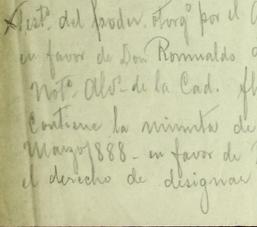 Testº. del poder otorgº por el
en favor de Don Romualdo
Notº. Alvº. de la Cad.
Contiene la minuta de
Marzo/888 - en favor de
el derecho de designar